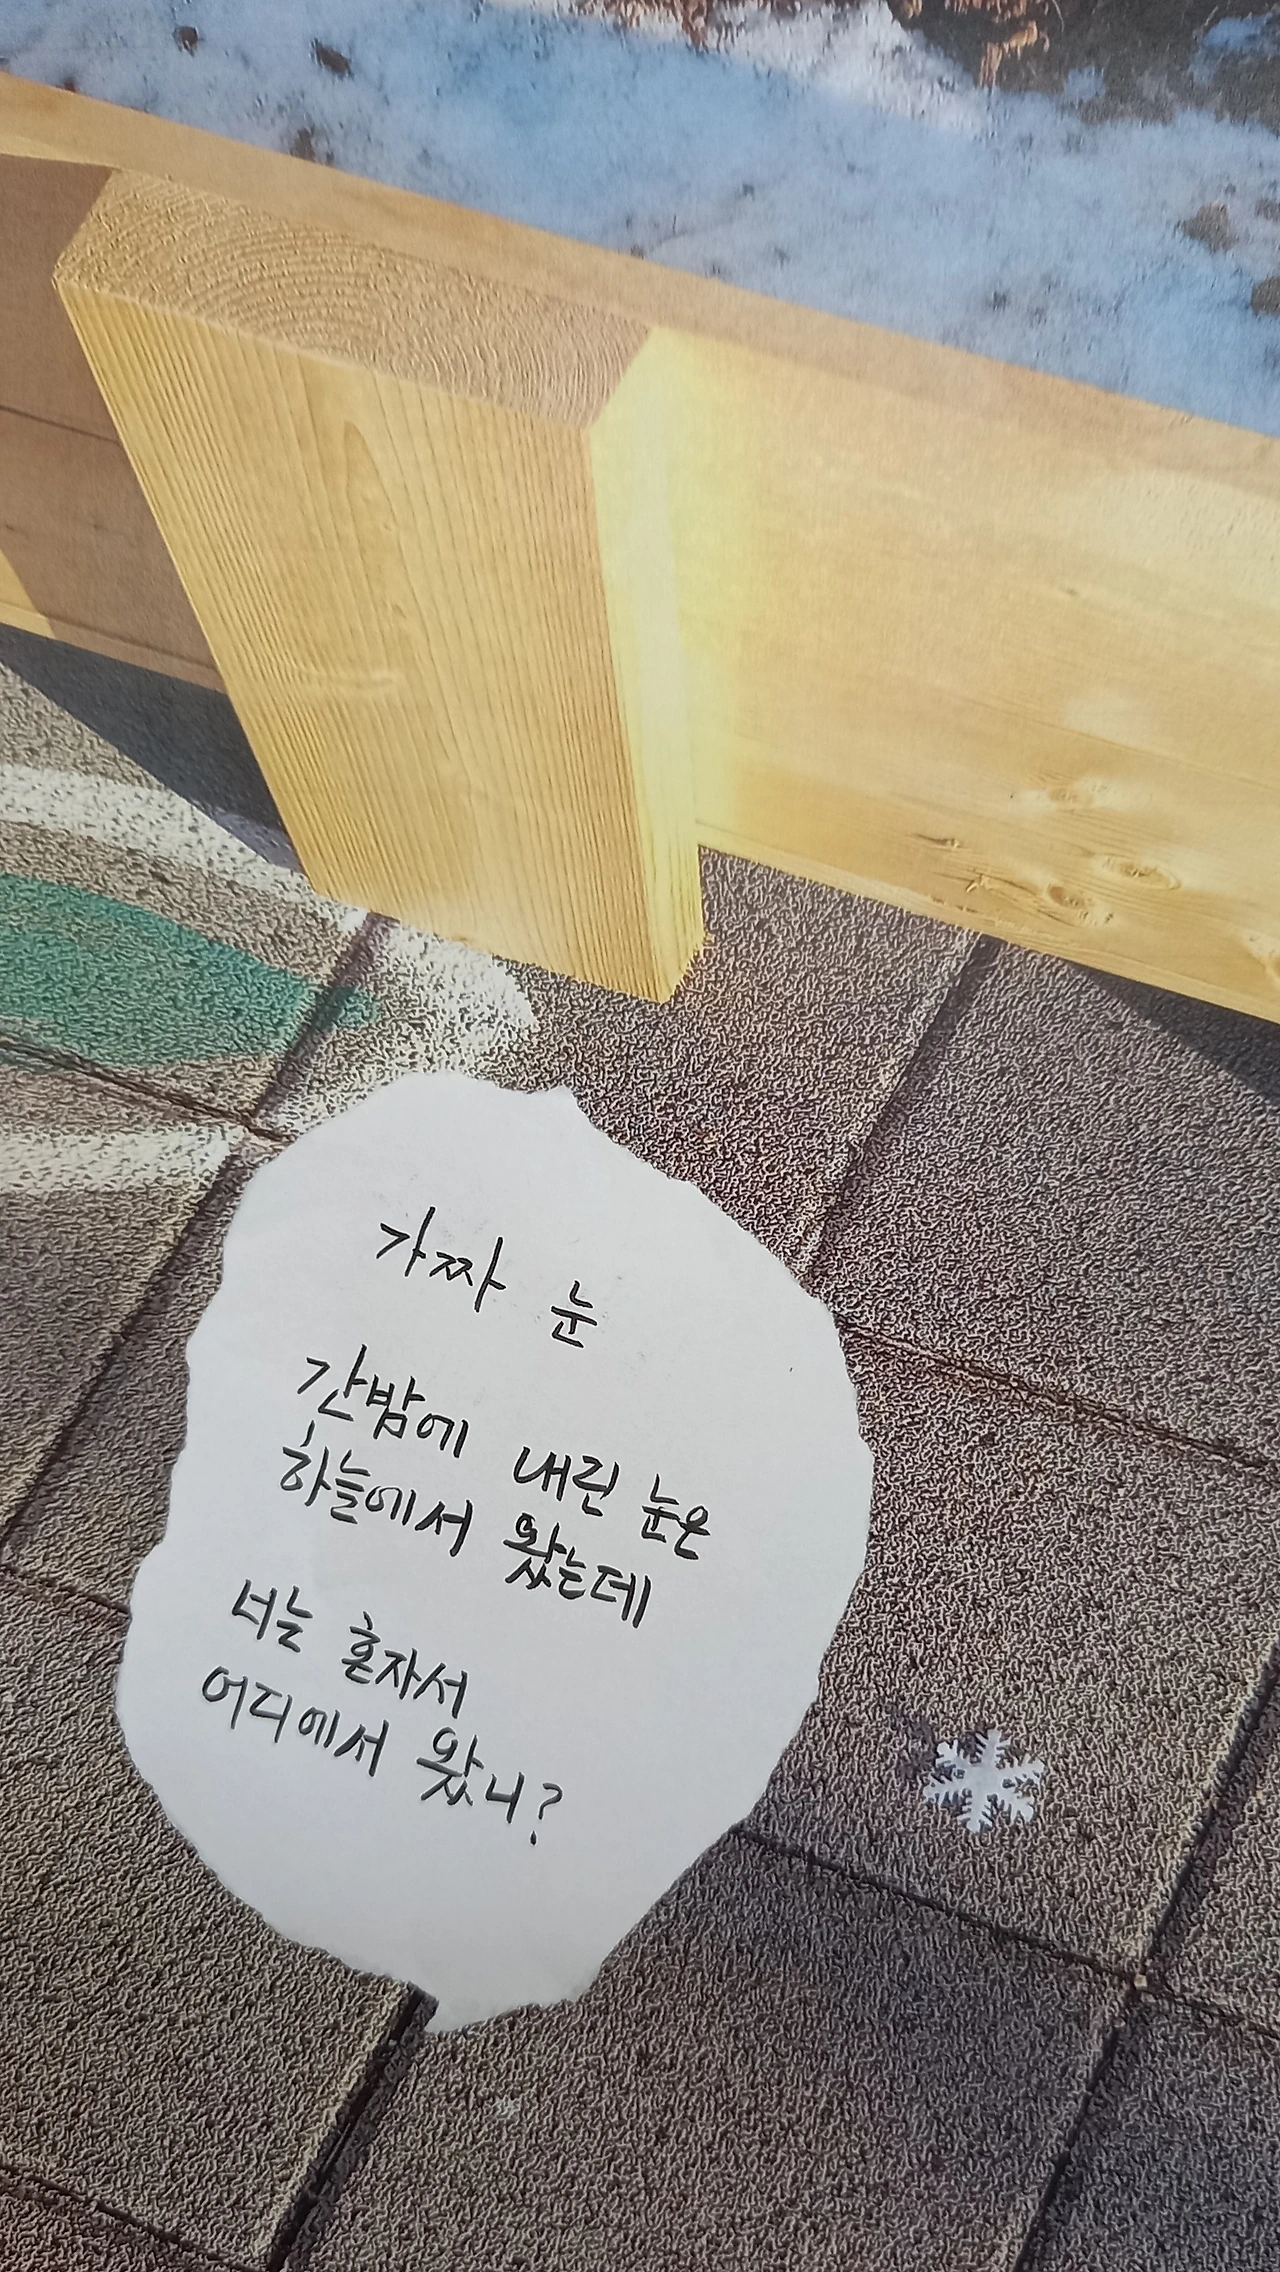 가짜 눈
간밤에 내린 눈은
하늘에서 왔는데
너는 혼자서
어디에서 왔니?